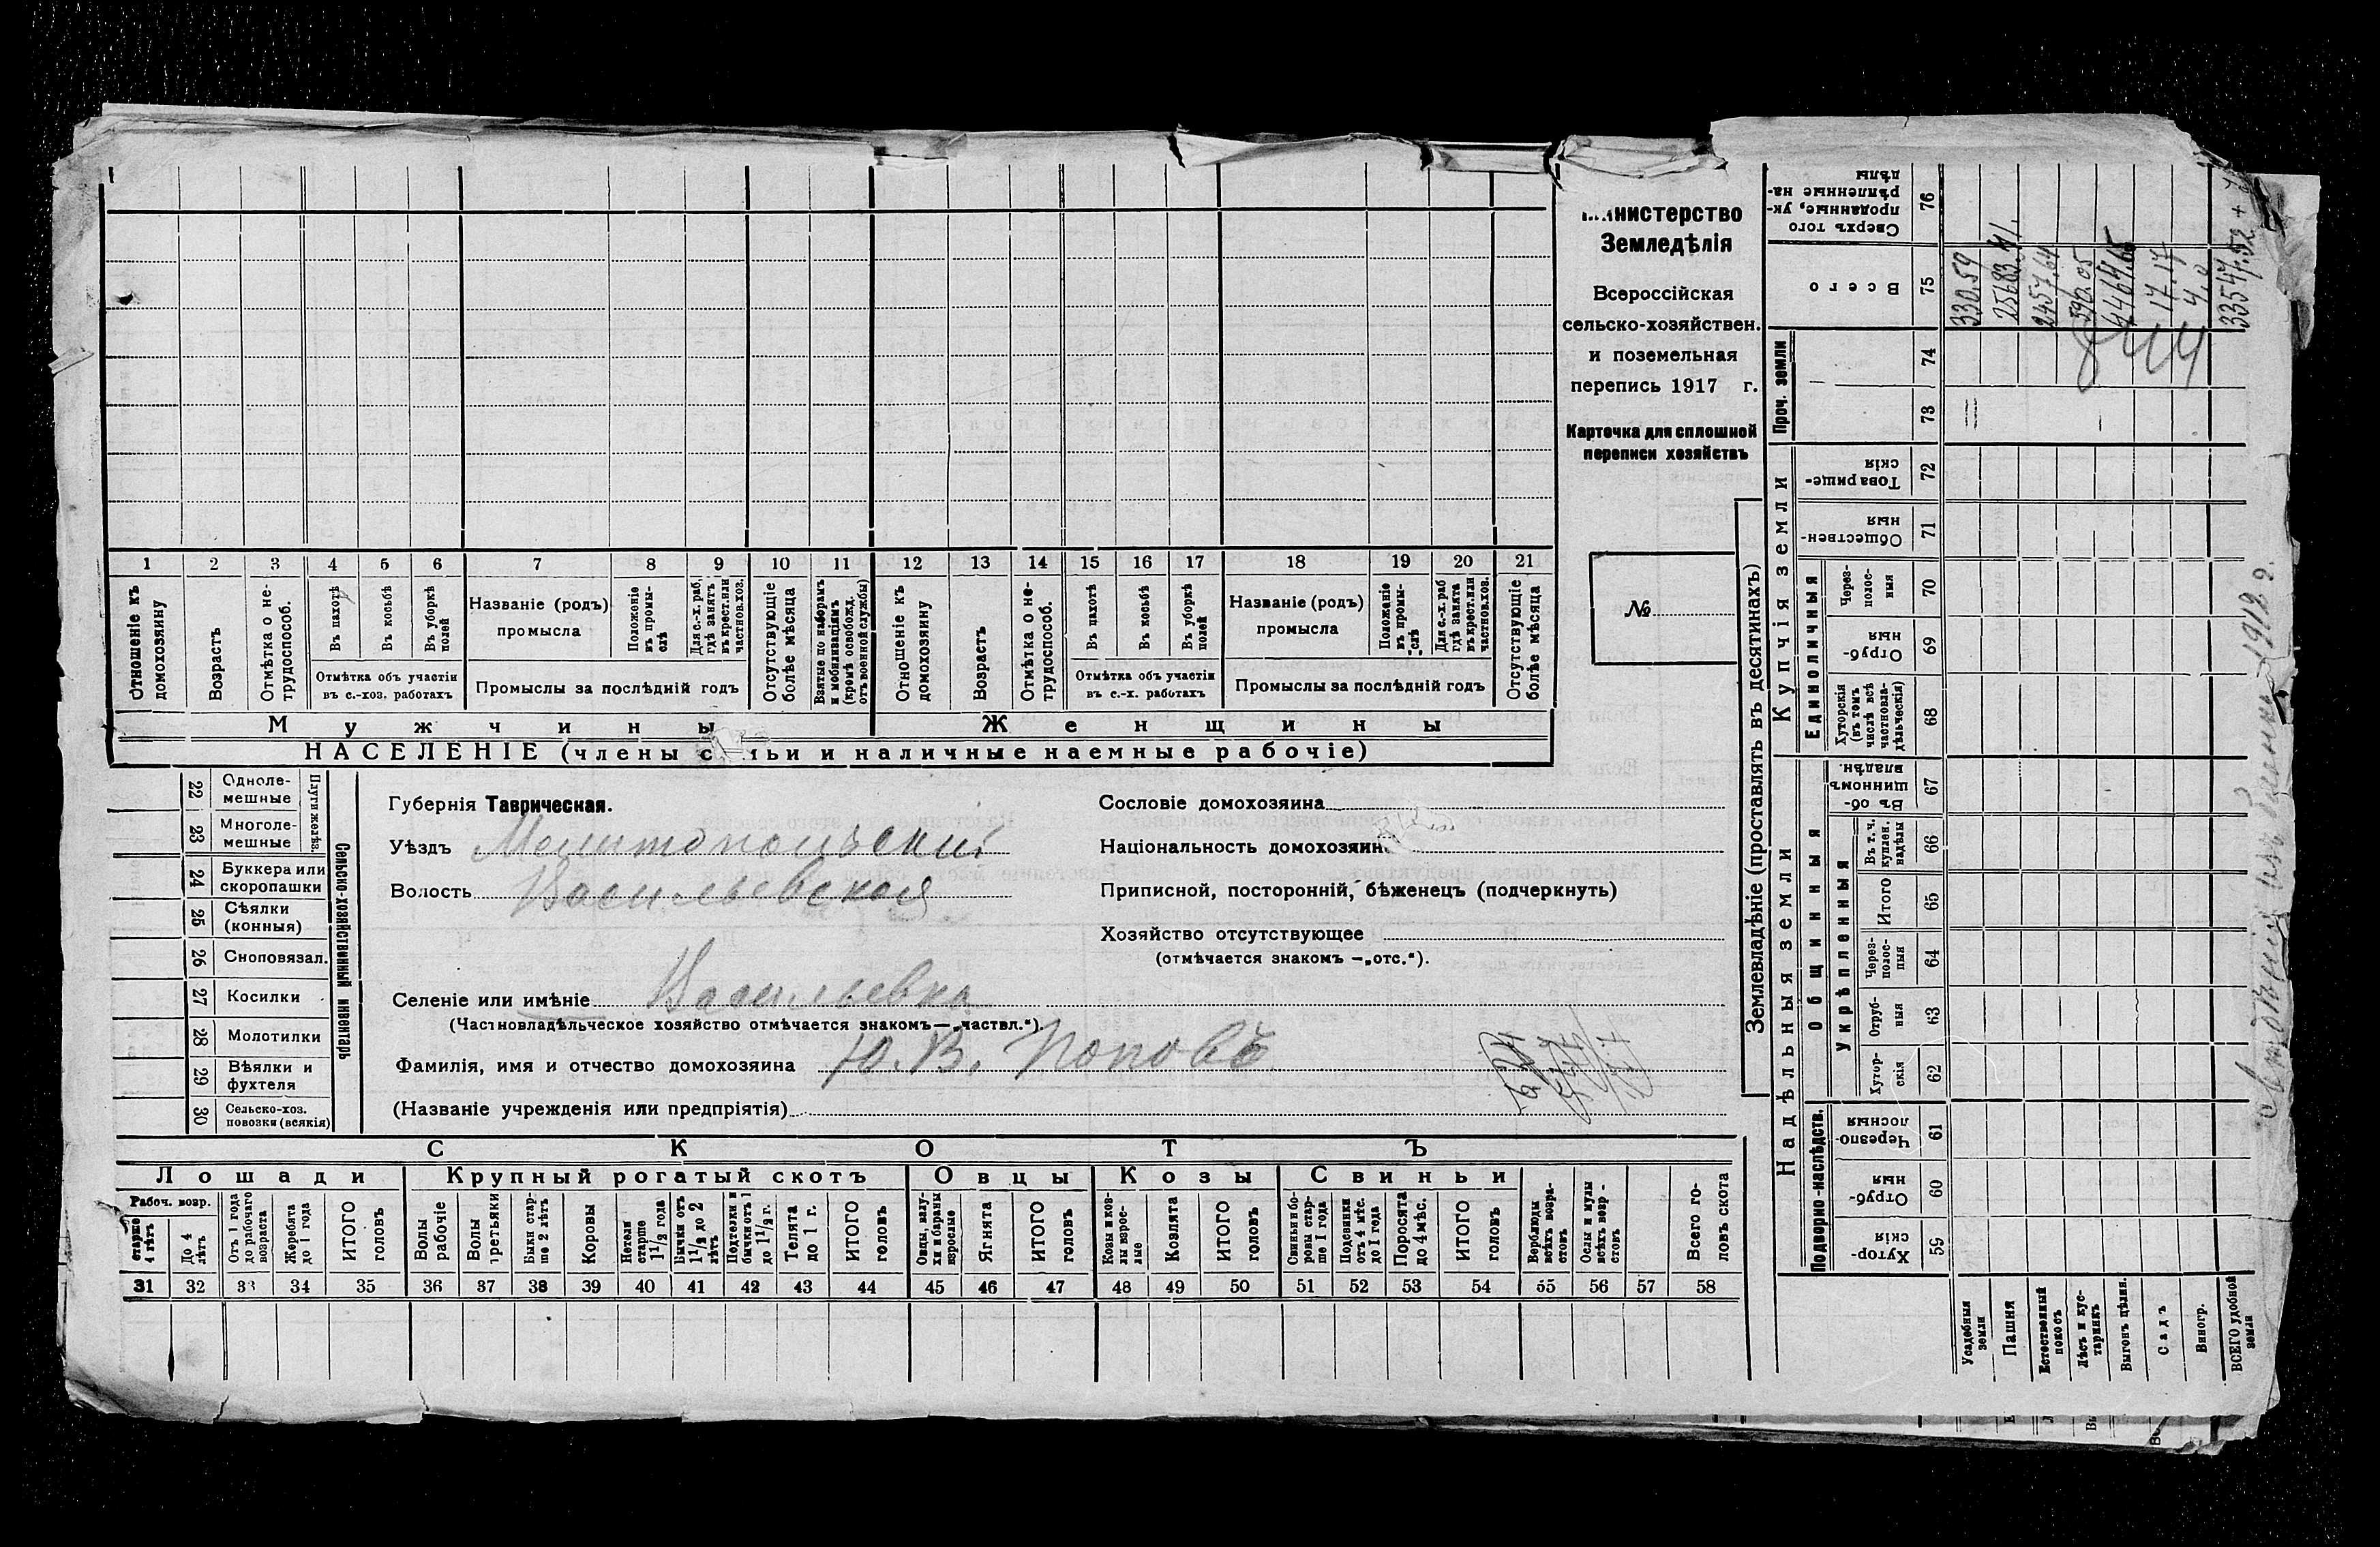 1 2 3 4 5 6 7 8 9 10 11 12 13 14 15 16 17 18 19 20 21
Отношеніе къ домохозяину
Возрастъ
Отмѣтка о не-
трудоспособ.
Въ пахотѣ
Въ косьбѣ
Въ уборкѣ
полей
Отмѣтка объ участіи
въ с.-хоз. работахъ
Названіе (родъ)
промысла
Положеніе
въ промы-
слѣ
Для с.-х. раб.
гдѣ занятъ
въ крест. или
частнов. хоз.
Промыслы за послѣдній годъ
Отсутствующіе
болѣе мѣсяца
Взятые по наборамъ
и мобилизаціямъ
(кромѣ освобожд.
отъ военной службы)
Отношеніе къ
домохозяину
Возрастъ
Отмѣтка о не-
трудоспособ.
Въ пахотѣ
Въ косьбѣ
Въ уборкѣ
полей
Отмѣтка объ участіи
въ с.-х. работахъ
Названіе (родъ)
промысла
Положеніе
въ промы-
слѣ
Для с.-х. раб
гдѣ занята
въ крест. или
частнов. хоз.
Промыслы за послѣдній годъ
Отсутствующіе
болѣе мѣсяца
Мужчины
Женщины
НАСЕЛЕНІЕ (члены с ьи и наличные наемные рабочіе)
нистерство
Земледѣлія
Всероссійская
сельско-хозяйствен.
и поземельная
перепись 1917 г.
Карточка для сплошной
переписи хозяйствъ
№
22 Одноле-
мешные
23 Многоле-
мешные
Плуги желѣз.
24 Буккера или
скоропашки
25 Сѣялки
(конныя)
26 Сноповязал.
27 Косилки
28 Молотилки
29 Вѣялки и
фухтеля
30 Сельско-хоз.
повозки (всякія)
Сельско-хозяйственный инвентарь
Губернія Таврическая.
Уѣздъ Мелитопольскій
Волость Васильевская
Селеніе или имѣніе Васильевка
(Частновладѣльческое хозяйство отмѣчается знакомъ—„частвл.“).
Фамилія, имя и отчество домохозяина Ю. В. Поповъ
(Названіе учрежденія или предпріятія)
Сословіе домохозяина
Національность домохозяин
Приписной, посторонній, бѣженецъ (подчеркнуть)
Хозяйство отсутствующее
(отмѣчается знакомъ —„отс.“).
СКОТЪ
Лошади
Крупный рогатый скотъ
Овцы
Козы
Свиньи
Рабоч. возр.
старше
4 лѣтъ
До 4
лѣтъ
Отъ 1 года
до рабочаго
возраста
Жеребята
до 1 года
ИТОГО
головъ
Волы
рабочіе
Волы
третьяки
Быки стар-
ше 2 лѣтъ
Коровы
Нетели
старше
1 1/2 года
Бычки отъ
1 1/2 до 2
лѣтъ
Подтелки и
бычки отъ 1
до 1 1/2 г.
Телята
до 1 г.
ИТОГО
головъ
Овцы, валу-
хи и бараны
взрослые
Ягнята
ИТОГО
головъ
Козы и коз-
лы взрос-
лые
Козлята
ИТОГО
головъ
Свиньи и бо-
ровы стар-
ше 1 года
Подсвинки
отъ 4 мѣс.
до 1 года
Поросята
до 4 мѣс.
ИТОГО
головъ
Верблюды
всѣхъ возра-
стовъ
Ослы и мулы
всѣхъ возр-
стовъ
Всего го-
ловъ скота
31 32 33 34 35 36 37 38 39 40 41 42 43 44 45 46 47 48 49 50 51 52 53 54 55 56 57 58
Землевладѣніе (проставлять въ десятинахъ)
Надѣльныя земли
Купчія земли
Проч. земли
Подворно-наслѣдств.
Общинныя
Укрѣпленныя
Единоличныя
Хутор-
скія
59
Отруб-
ныя
60
Черезпо-
лосныя
61
Хутор-
скія
62
Отруб-
ныя
63
Через-
полос-
ныя
64
Итого
65
Въ т. ч.
куплен.
надѣлы
66
Въ об-
щинномъ
владѣн.
67
Хуторскія
(въ томъ
числѣ всѣ
частновла-
дѣльческія)
68
Отруб-
ныя
69
Через-
полос-
ныя
70
Обществен-
ныя
71
Товарище-
скія
72
73
74
Всего
75
Сверхъ того
проданные, ук-
рѣпленные на-
дѣлы
76
Усадебныя
земли
330.59
Пашня
25683.41.
Естественный
покосъ
2457.64
Лѣсъ и кус-
тарникъ
590.05
Выгонъ цѣлин.
4464.65
Садъ
17.17
Виногр.
4,0
ВСЕГО удобной
земли
33547.52 +